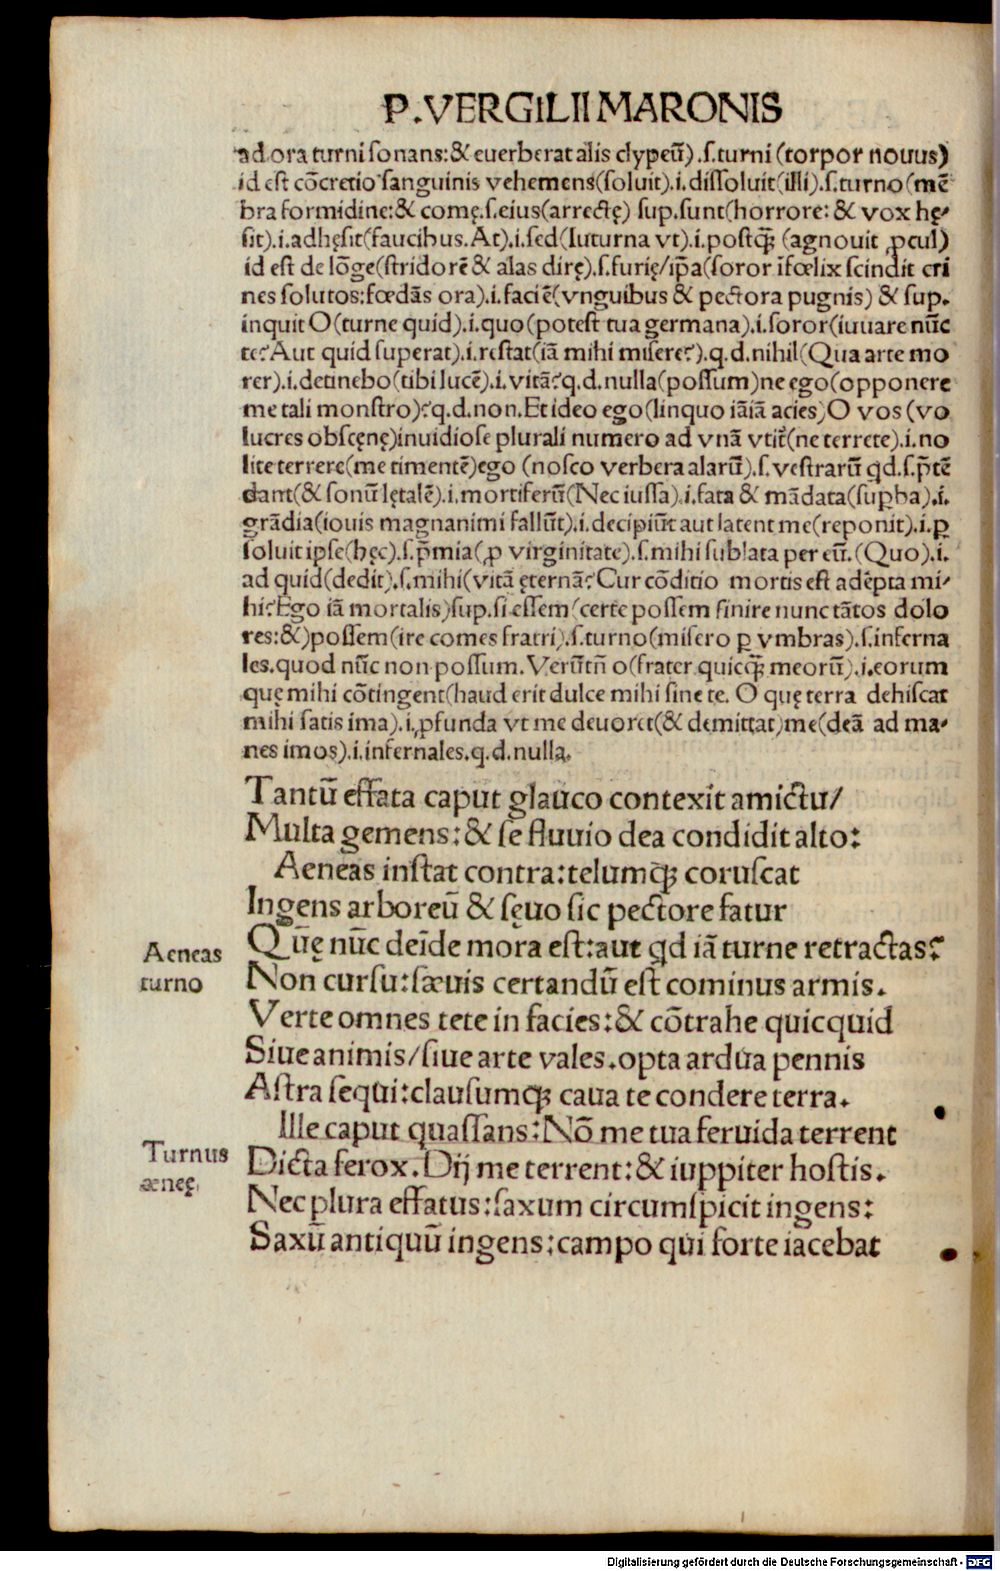 P.VERGILII MARONIS
ad ora turni sonans:& euerberat alis clypeū).ſ.turni (torpor nouus)
id eſt cōcretio ſanguinis vehemens(ſoluit).i.diſſoluit(illi).ſ.turno(mē
bra formidine:& comę.ſ.eius(arrectę) ſup.ſunt(horrore: & vox hę/
ſit).i.adhęſit(faucibus.At).i.ſed(Iuturna vt).i.poſtꝗ̃ (agnouit ꝓcul)
id eſt de lōge(ſtridorē & alas dirę).ſ.furię/ip̄a(ſoror īfœlix ſcindit cri
nes ſolutos:fœdās ora).i.faciē(vnguibus & pectora pugnis) & ſup.
inquit O(turne quid).i.quo(poteſt tua germana).i.ſoror(iuuare nūc
te?Aut quid ſuperat).i.reſtat(iā mihi miſere?).q.d.nihil(Qua arte mo
rer).i.detinebo(tibi lucē).i.vitā?q.d.nulla(poſſum)ne ego(opponere
me tali monſtro)?q.d.non.Et ideo ego(linquo iāiā acies)O vos (vo
lucres obſcęnę)inuidioſe plurali numero ad vnā vtit̄(ne terrete).i.no
lite terrere(me timentē)ego (noſco verbera alarū).ſ.veſtrarū qd.ſ.p̄tē
dant(& ſonū lętalē).i.mortiferū(Nec iuſſa).i.fata & mādata(ſuꝑba).i.
grādia(iouis magnanimi fallūt).i.decipiūt aut latent me(reponit).i.ꝑ
ſoluit ipſe(hęc).ſ.p̄mia(ꝓ virginitate).ſ.mihi ſublata per eū.(Quo).i.
ad quid(dedit).ſ.mihi(vitā ęternā?Cur cōditio mortis eſt adēpta mi/
hi?Ego iā mortalis)ſup.ſi eſſem/certe poſſem finire nunc tātos dolo
res:&)poſſem(ire comes fratri).ſ.turno(miſero ꝑ vmbras).ſ.inferna
les.quod nūc non poſſum.Verūtn̄ o(frater quicꝗ̃ meorū).i.eorum
quę mihi cōtingent(haud erit dulce mihi ſine te. O quę terra dehiſcat
mihi ſatis ima).i.ꝓfunda vt me deuoret(& demittat)me(deā ad ma/
nes imos).i.infernales.q.d.nulla.
Tantū effata caput glauco contexit amictu/
Multa gemens:& ſe fluuio dea condidit alto:
Aeneas inſtat contra:telumꝗ; coruſcat
Ingens arboreū & ſęuo ſic pectore fatur
Aeneas turno
Quę nūc deīde mora eſt:aut qd iā turne retractas?
Non curſu:ſæuis certandū eſt cominus armis.
Verte omnes tete in facies:& cōtrahe quicquid
Siue animis/ſiue arte vales.opta ardua pennis
Aſtra ſequi:clauſumꝗ; caua te condere terra.
Ille caput quaſſans:Nō me tua feruida terrent
Turnus æneę.
Dicta ferox.Dij me terrent:& iuppiter hoſtis.
Nec plura effatus:ſaxum circumſpicit ingens:
Saxū antiquū ingens:campo qui forte iacebat
Digitalisierung gefördert durch die Deutsche Forschungsgemeinschaft - DFG